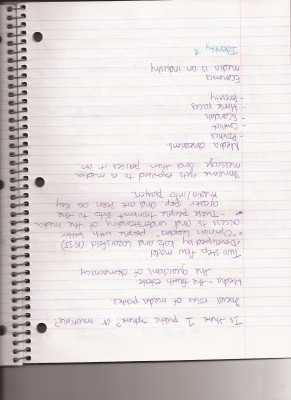 Is there 1 public sphere? or multiple?
Social roles of media politics
Media - the fourth estate
the guardians of democracy
Two step flow model
• Developed by Katz and Lazarsfeld (1955)
• "Opinion Leaders" people with better
access to and understanding of the media
• These people transmit this to the
greater pop and are seen as key
media/info players.
Someone gets exposed to a media
message and then passes it on
Media obsessions
- Politics
- Conflict
- Scandals
- Horse races
- Brevity
Economics
media is an industry
Identity